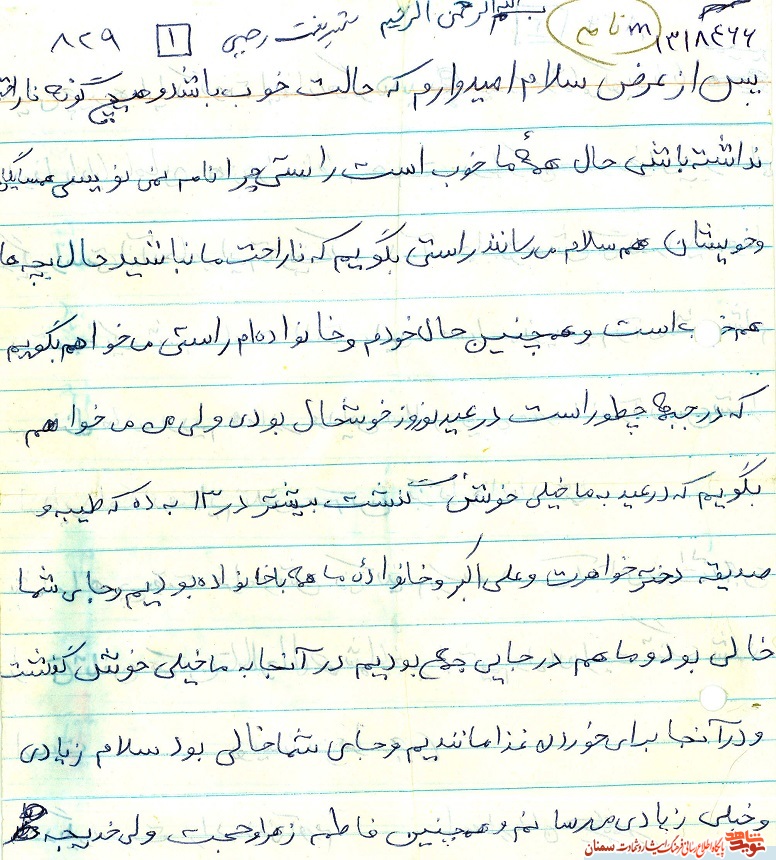 بسم الله الرحمن الرحیم
۱۳۱۸۴۶۶ نامه m شریعت رجبی ۱ ۸۲۹
پس از عرض سلام امیدوارم که حالت خوب باشد و هیچ گونه
نداشته باشی حال همهٔ ما خوب است راستی چرا نامه نمی نویسی
و خویشان هم سلام می رسانند راستی بگویم که ناراحت ما نباشید حال بچه ها
هم است و همچنین حال خودم و خانواده ام راستی می خواهم بگویم
که در جبهه چطور است در عید نوروز خوشحال بودی ولی من می خواهم
بگویم که در عید به ما خیلی خوش گذشت بیشتر در ۱۳ به ده که طیبه و
صدیقه دختر خواهرت و علی اکبر و خانوادهٔ ما همه با خانواده بودیم و جای شما
خالی بود و ما هم در جایی جمع بودیم در آنجا به ما خیلی خوش گذشت
و در آنجا برای خوردن غذا ماندیم و جای شما خالی بود سلام زیادی
و خیلی زیادی می رسانم و همچنین فاطمه زهرا و حجت ولی خدیجه
نوید شاهد
پایگاه اطلاع رسانی فرهنگ ایثار و شهادت سمنان